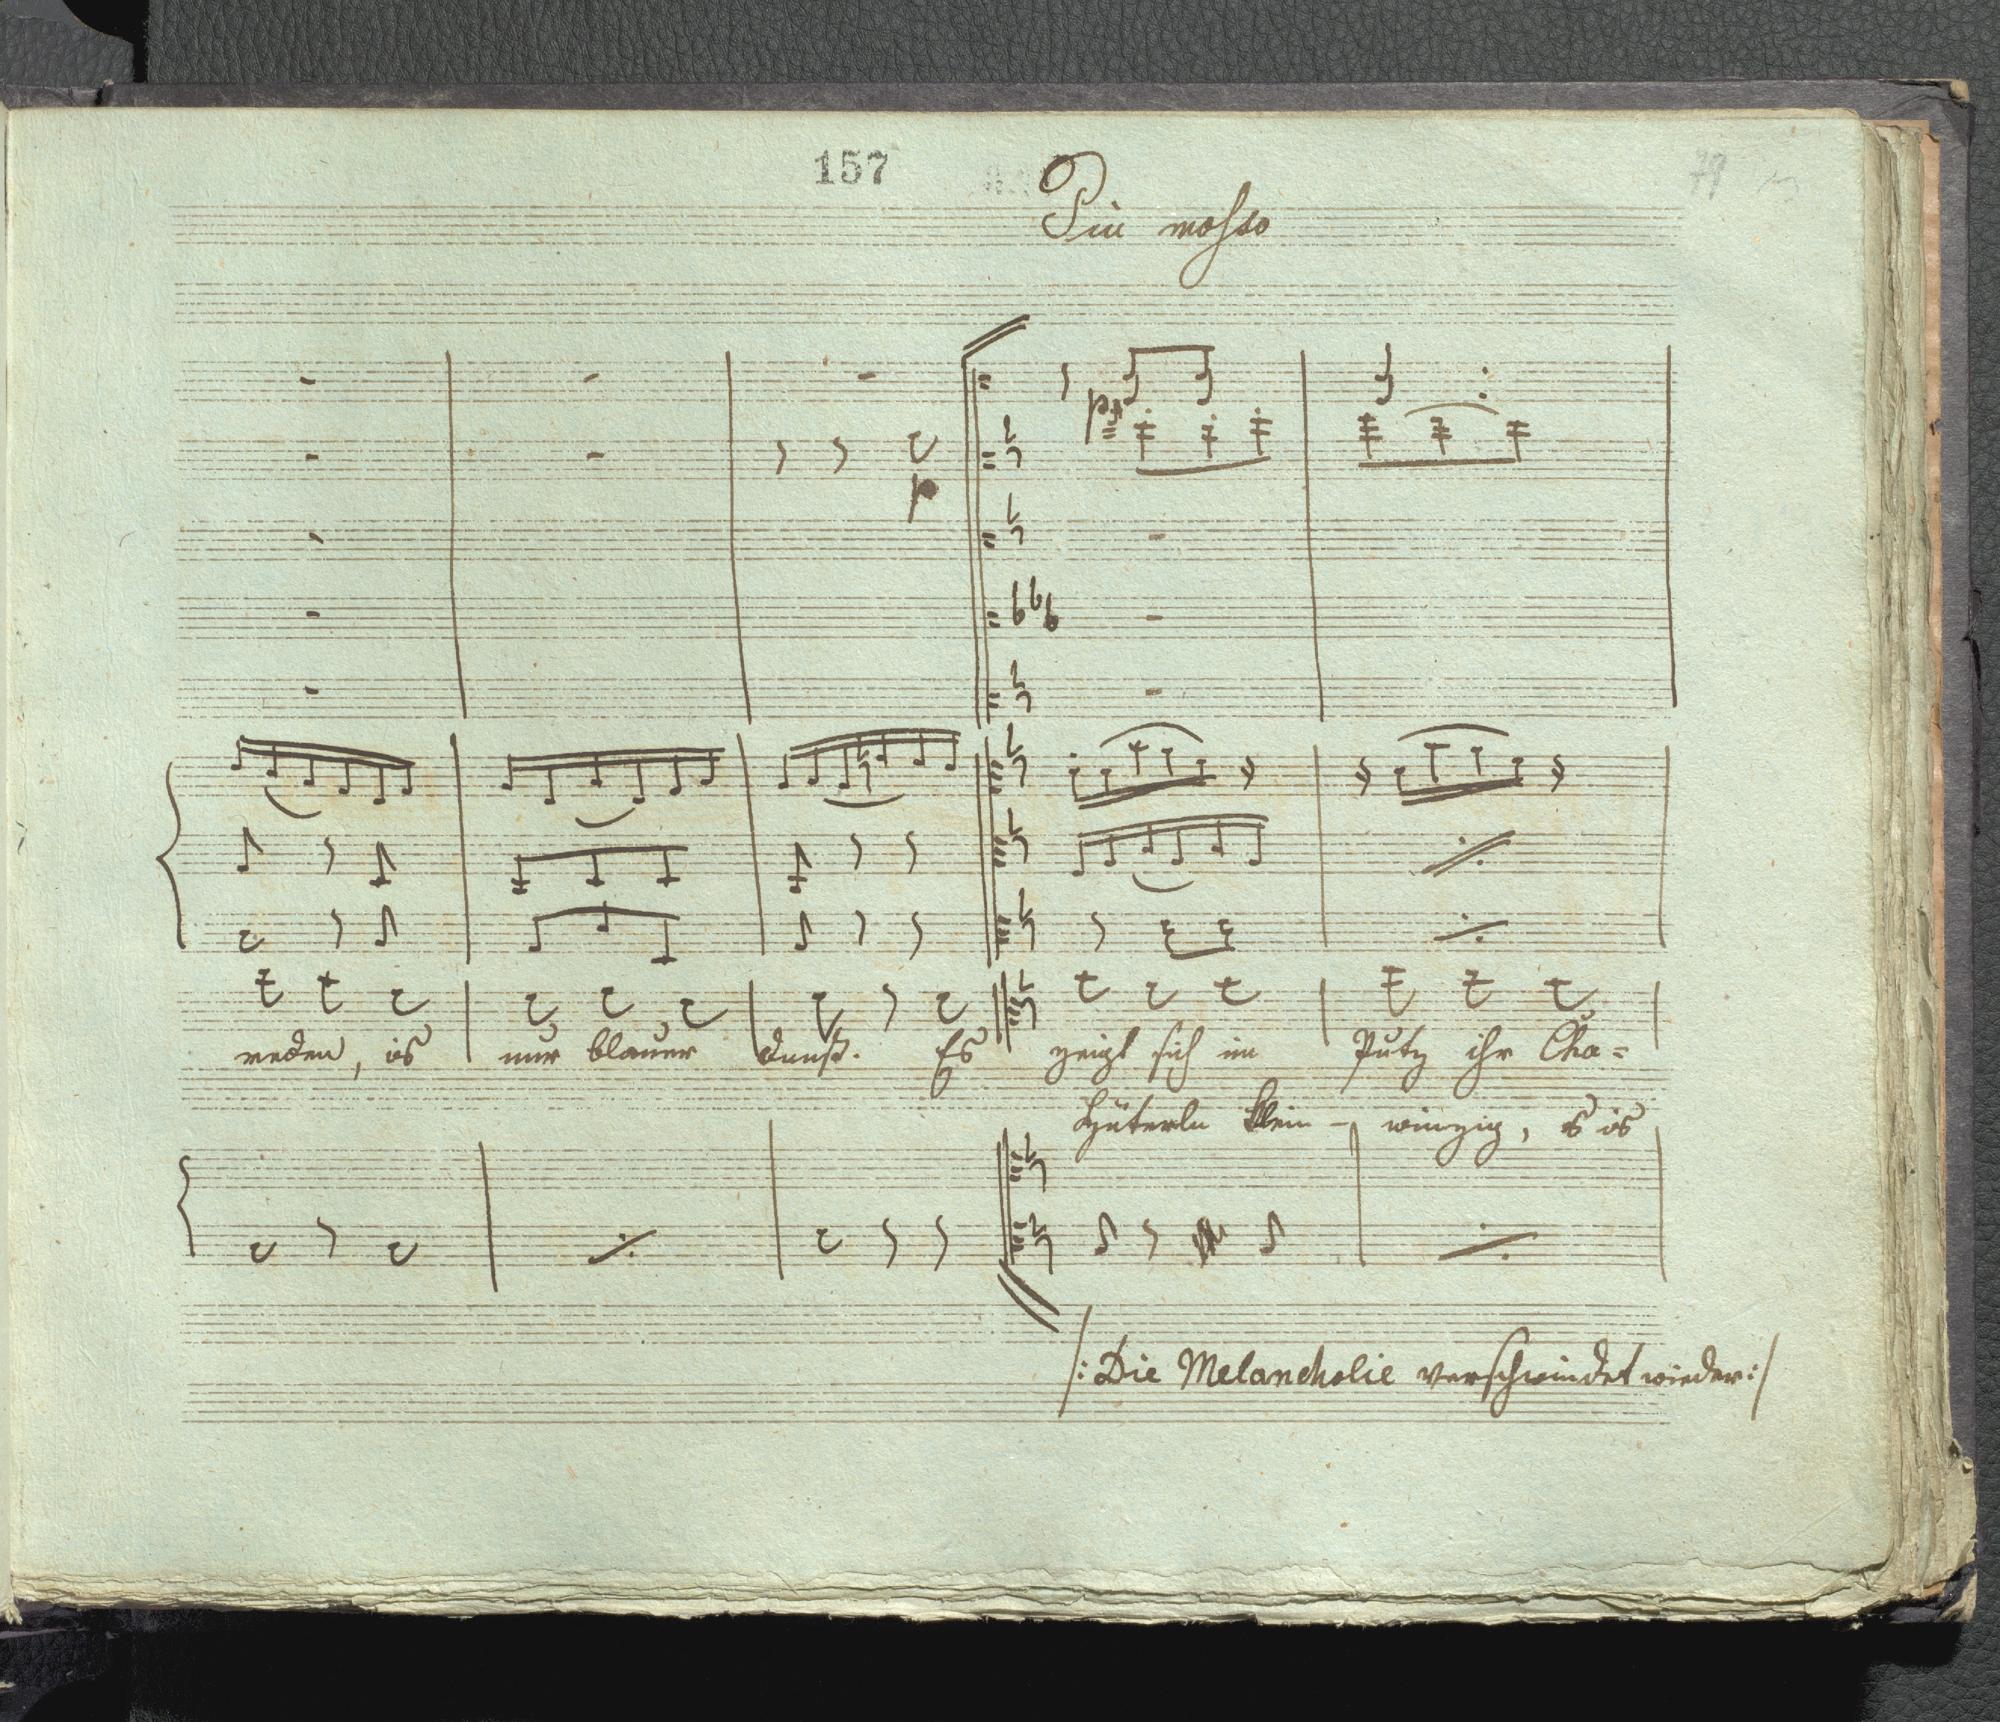 157
79
Piu mosso
p
p
reden, is nur blauer dunst. Es zeigt sich im Putz ihr Cha=
Hüterln klein - winzig, es is
/: Die Melancholie verschwindet wieder :/